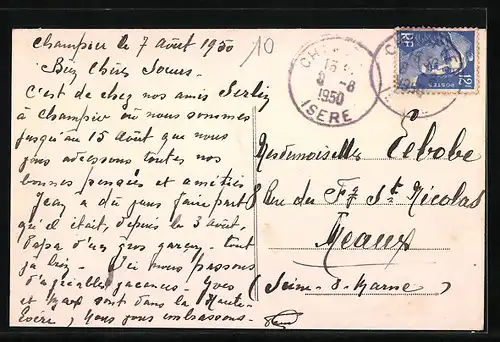 Champier le 7 août 1950
10
Bien Chères Soeurs
C'est de chez nos amis
à Champier où nous sommes
jusqu'au 15 Août que nous
vous adressons toutes nos
bonnes pensées et amitiés
Jean a dû vous faire part
qu'il était, depuis le 3 août,
Papa d'un gros garçon - tout
va bien - Ici nous passons
d'agréables vacances - Yves
et sont dans la Haute-
Isère, Nous vous embrassons -
CH
8 -8
1950
ISERE
RF
12F
POSTES
Mesdemoiselles Lebobe
Rue du Fg St Nicolas
Meaux
(Seine-&-Marne)